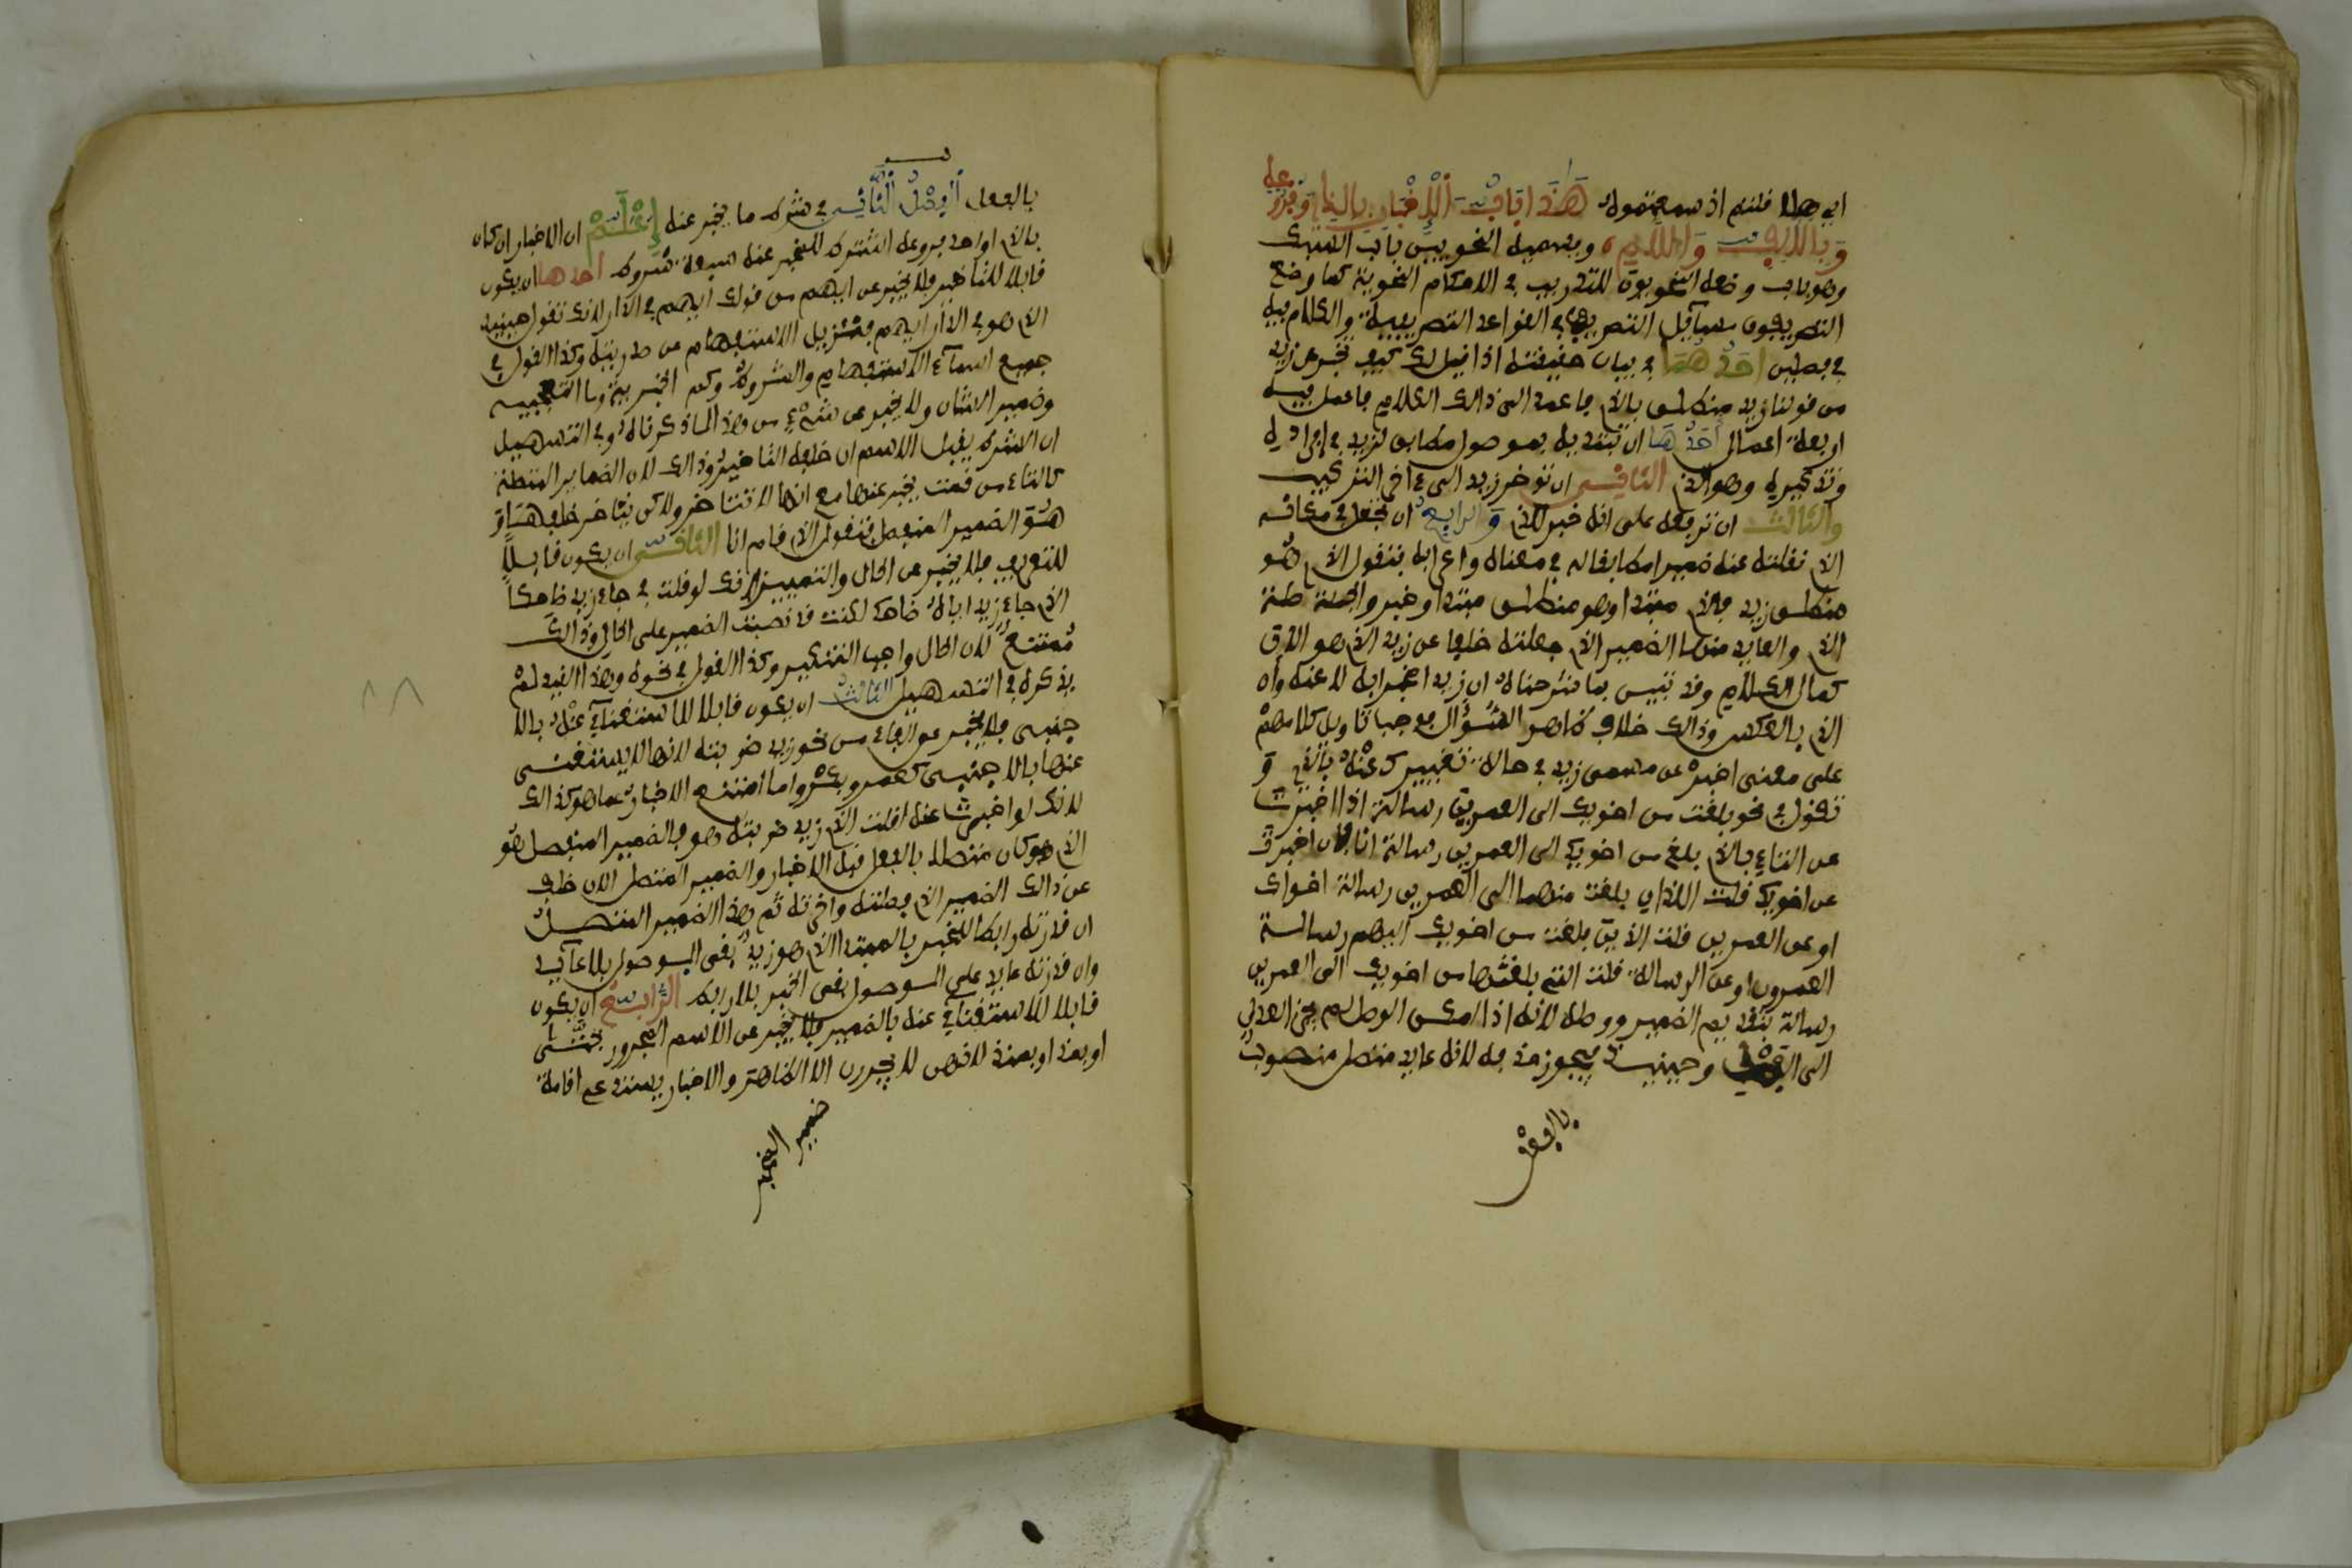 اي هلا قلتم اذ سمعتموه هَذَا بَابُ الْإِخْبَارِ بِالذِي وَفُرُوعِهِ
وَبِالْأَلِفِ وَاللَّامِ ويسميه النحويين باب السبك
وهو باب وضعه النحويون للتدريب في الاحكام النحوية كما وضع
التصريفيون مسآئل التصريف في القواعد التصريفية والكلام فيه
في فصلين احَدُهُمَا في بيان حقيقته اذا قيل لك كيف تخبر عن زيد
من قولنا زيد منطلق بالذي فاعمد الى ذالك الكلام فاعمل فيه
اربعة اعمال أَحَدُهَا ان تبتديه بموصول مطابق لزيد في افراده
وتذكيره وهو الذي الثاني ان توخر زيد الى ءاخر التركيب
والثالث ان ترفعه على انه خبر للذي وَالرابع ان تجعل في مكانه
الذي نقلته عنه ضميرا مطابقا له في معناه واعرابه فتقول الذي هو
منطلق زيد فالذي مبتدا وهو منطلق مبتدا وخبر والجملة صلة
الذي والعايد منها الضمير الذي جعلته خلفا عن زيد الذي هو الان
كمال الكلام وقد تبين بما شرحناه ان زيد اخبر به لا عنه وان
الذي بالعكس وذالك خلاف ظاهر السؤال فوجب تاويل كلامهم
على معنى اخبر عن مسمى زيد في حالة تعبيرك عنه بالذي و
تقول في نحو بلغت من اخويك الى العمرين رسالة اذا اخبرت
عن التاء بالذي بلغ من اخويك الى العمرين رسالة انا فان اخبرت
عن اخويك قلت اللذان بلغت منهما الى العمرين رسالة اخواك
او عن العمرين قلت الذين بلغت من اخويك اليهم رسالة
العمرون او عن الرسالة قلت التي بلغتها من اخويك الى العمرين
رسالة فتقديم الضمير ووصله لانه اذا امكن الوصل لم يجز العدول
الى الفصل وحينيذ يجوز حذفه لانه عايد متصل منصوب
بالفعل
بالفعل الْفَصْلُ الثَّانِي في شروط ما يخبر عنه إِعْلَمْ ان الاخبار ان كان
بالذي او احد فروعه اشترط للمخبر عنه سبعة شروط احدها ان يكون
قابلا للتاخير فلا يخبر عن ايهم من قولك ايهم في الدار لانك تقول حينيذ
الذي هو في الدار ايهم فتزيل الاستفهام عن صدريته وكذا القول في
جميع اسمآء الاستفهام والشروط وكم الخبرية وما التعجبية
وضمير الشان ولا يخبر عن شيء من هذا لما ذكرناه وفي التسهيل
ان الشرط يقبل الاسم ان خلفه التاخير وذالك لان الضماير المتصلة
كالتاء من قمت يخبر عنها مع انها لا تتاخر ولاكن يتاخر خلفها وَ
هُوَ الضمير المنفصل فتقول الذي قام انا الثاني ان يكون قابلاً
للتعريف فلا يخبر عن الحال والتمييز لانك لو قلت في جاء زيد ضاحكا
الذي جاء زيد اياه ضاحك لكنت قد نصبت الضمير على الحال وذالك
ممتنع لان الحال واجب التنكير وكذا القول في نحوه وهذا القيد لم
يذكره في التسهيل الثالث ان يكون قابلا للاستغناء عنه بالا
جنبي فلا يخبر عن الهاء من نحو زيد ضربته لانها لا يستغنى
عنها بالاجنبي كعمرو وبكر وانما امتنع الاخبار عما هو كذالك
لانك لو اخبرت عنه لقلت الذي زيد ضربته هو فالضمير المنفصل هو
الذي كان متصلا بالفعل قبل الاخبار والضمير المتصل الان خلف
عن ذالك الضمير الذي فصلته واخرته ثم هذا الضمير المتصل
ان قدرته رابطا للخبر بالمبتدا الذي هو زيد بقي الموصول بلا عآئد
وان قدرته عايد على الموصول بقي الخبر بلا رابط الرابع ان يكون
قابلا للاستغناء عنه بالضمير فلا يخبر عن الاسم المجرور بحتى
او بمذ او بمنذ لانهن لا يجررن الا الظاهر والاخبار يستدعي اقامة
ضمير المخبر
٨٨